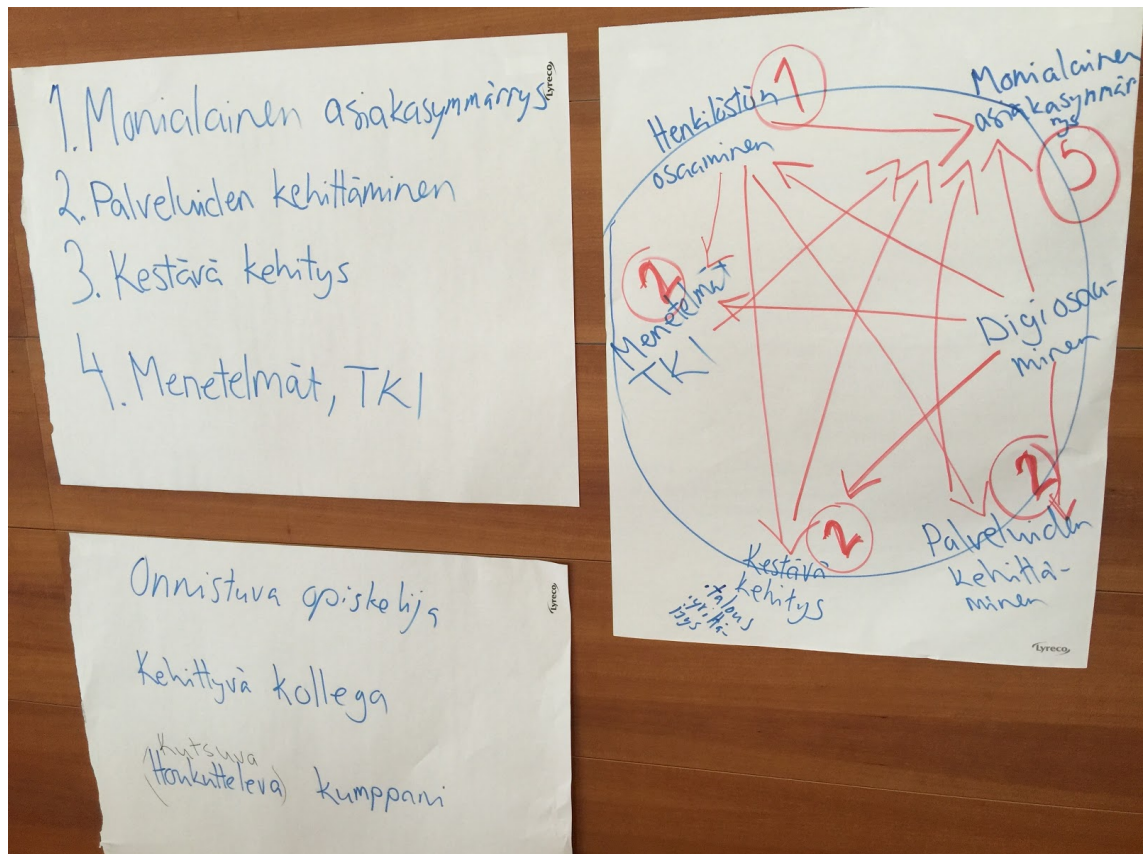 1. Monialainen asiakasymmärrys
2. Palveluiden kehittäminen
3. Kestävä kehitys
4. Menetelmät, TKI
Lyreco
Onnistuva opiskelija
Kehittyvä kollega
Kutsuva
(Houkutteleva) kumppani
Lyreco
1
Henkilöstön
osaaminen
Monialainen
asiakasymmär
rys
5
2
Menetelmät
TKI
Digiosaa-
minen
2
Palveluiden
kehittä-
minen
2
Kestävä
kehitys
. talous
. yrittä-
jyys
Lyreco